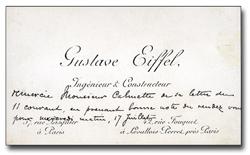 Gustave Eiffel,
Ingénieur & Constructeur
remercie Monsieur Calmette de sa lettre du
11 courant, en prenant bonne note du rendez vous
pour mercredi matin, 17 juillet
37, rue Pasquier
à Paris
42, rue Fouquet
à Levallois Perret, près Paris